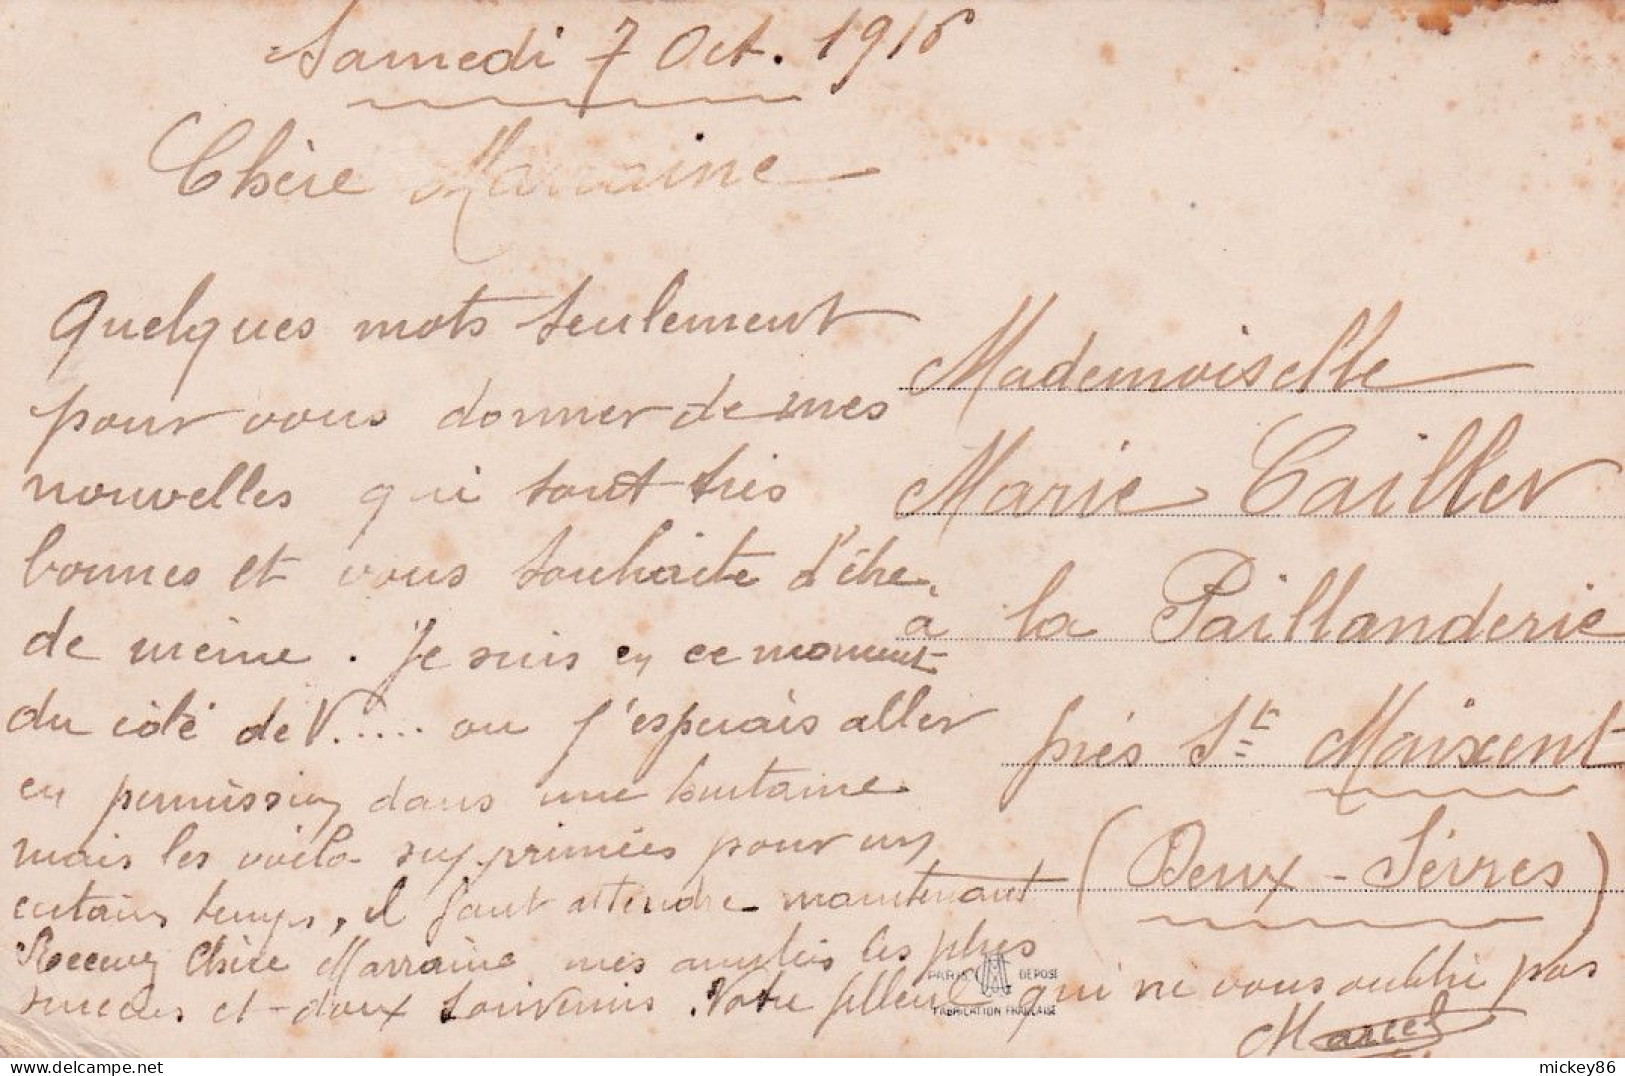 Samedi 7 Oct. 1916
Chère Marraine
Quelques mots seulement
pour vous donner de mes
nouvelles qui sont très
bonnes et vous souhaite d'être
de même. Je suis en ce moment
du côté de V..... ou j'esperais aller
en permission dans une huitaine
mais les voila supprimées pour un
certain temps, il faut attendre maintenant
Recevez Chère Marraine mes amitiés les plus
sincères et doux souvenirs. Votre filleul qui ne vous oublie pas
Marcel
Mademoiselle
Marie Cailler
à la Paillanderie
près St Maixent
(Deux-Sèvres)
PARIS DEPOSE
FABRICATION FRANÇAISE
mickey86